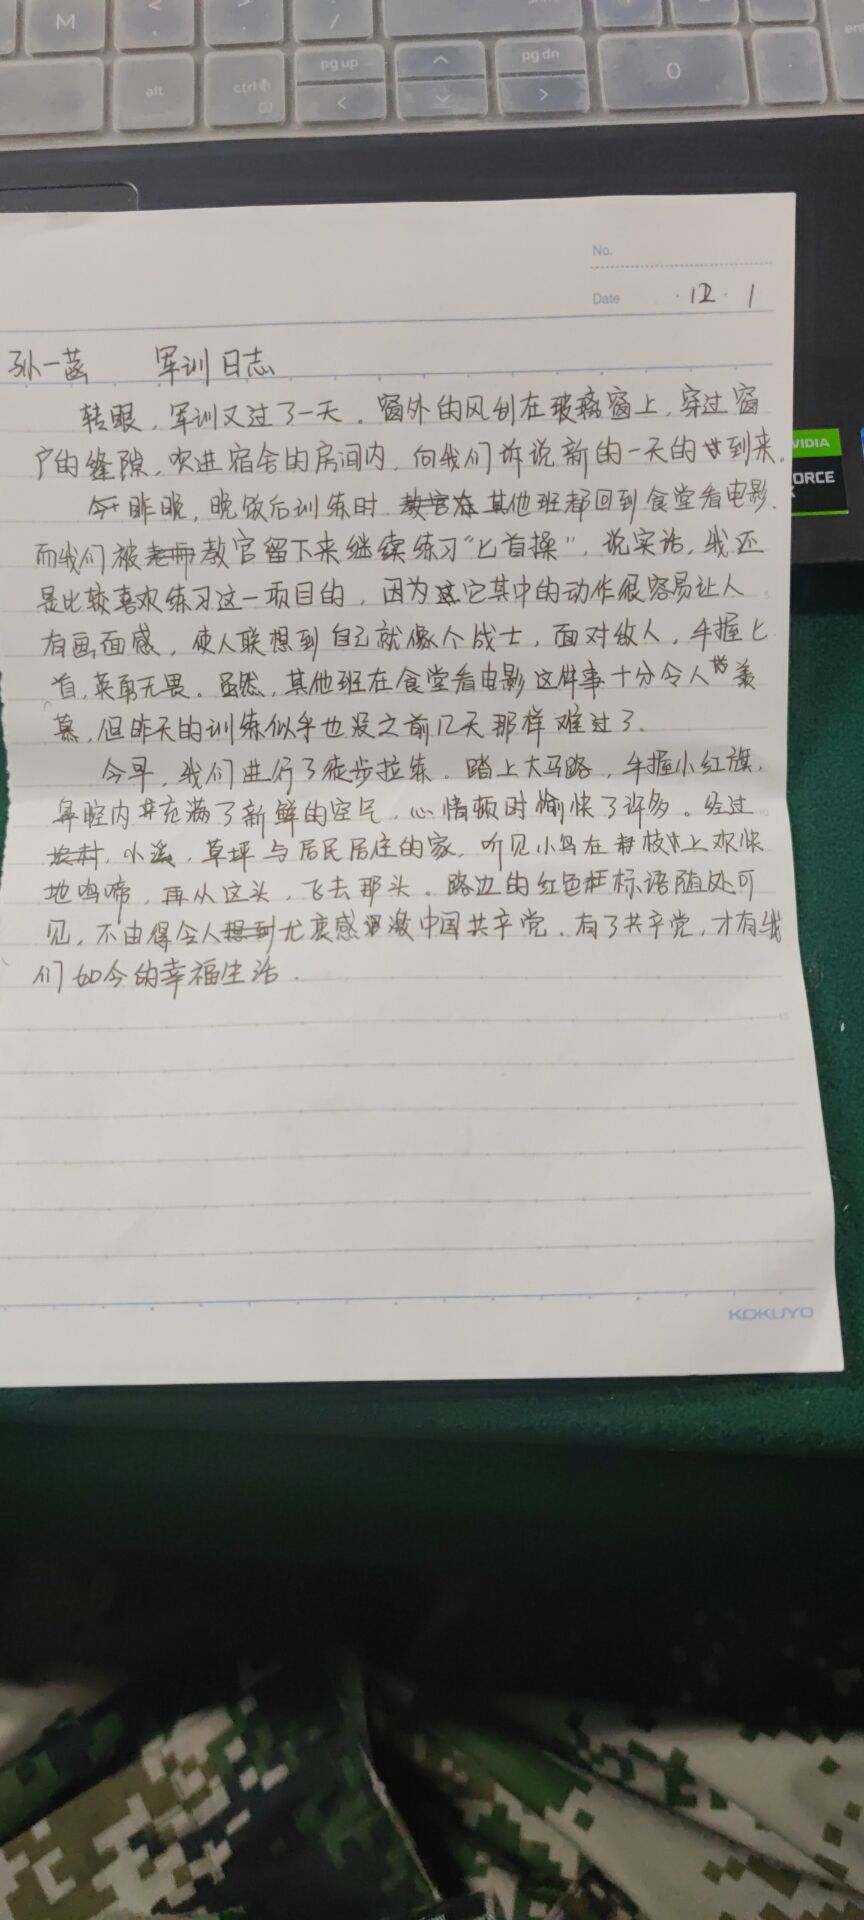 M
<
>
/
alt
ctrl
pg up
pg dn
<
>
0
.
NVIDIA
No.
Date 12.1
孙一菡 军训日志
转眼，军训又过了一天。窗外的风刮在玻璃窗上，穿过窗
户的缝隙，吹进宿舍的房间内，向我们诉说新的一天的到来。
昨晚，晚饭后训练时，其他班都回到食堂看电影，
而我们被教官留下来继续练习“匕首操”，说实话，我还
是比较喜欢练习这一项目的，因为它其中的动作很容易让人
有画面感，使人联想到自己就像个战士，面对敌人，手握匕
首，英勇无畏。虽然，其他班在食堂看电影这件事十分令人羡
慕，但昨天的训练似乎也没之前几天那样难过了。
今早，我们进行了徒步拉练。踏上大马路，手握小红旗，
鼻腔内充满了新鲜的空气，心情顿时愉快了许多。经过
小溪，草坪与居民居住的家，听见小鸟在枝上欢快
地鸣啼，再从这头，飞去那头。路边的红色标语随处可
见，不由得令人尤衷感激中国共产党。有了共产党，才有我
们如今的幸福生活。
KOKUYO